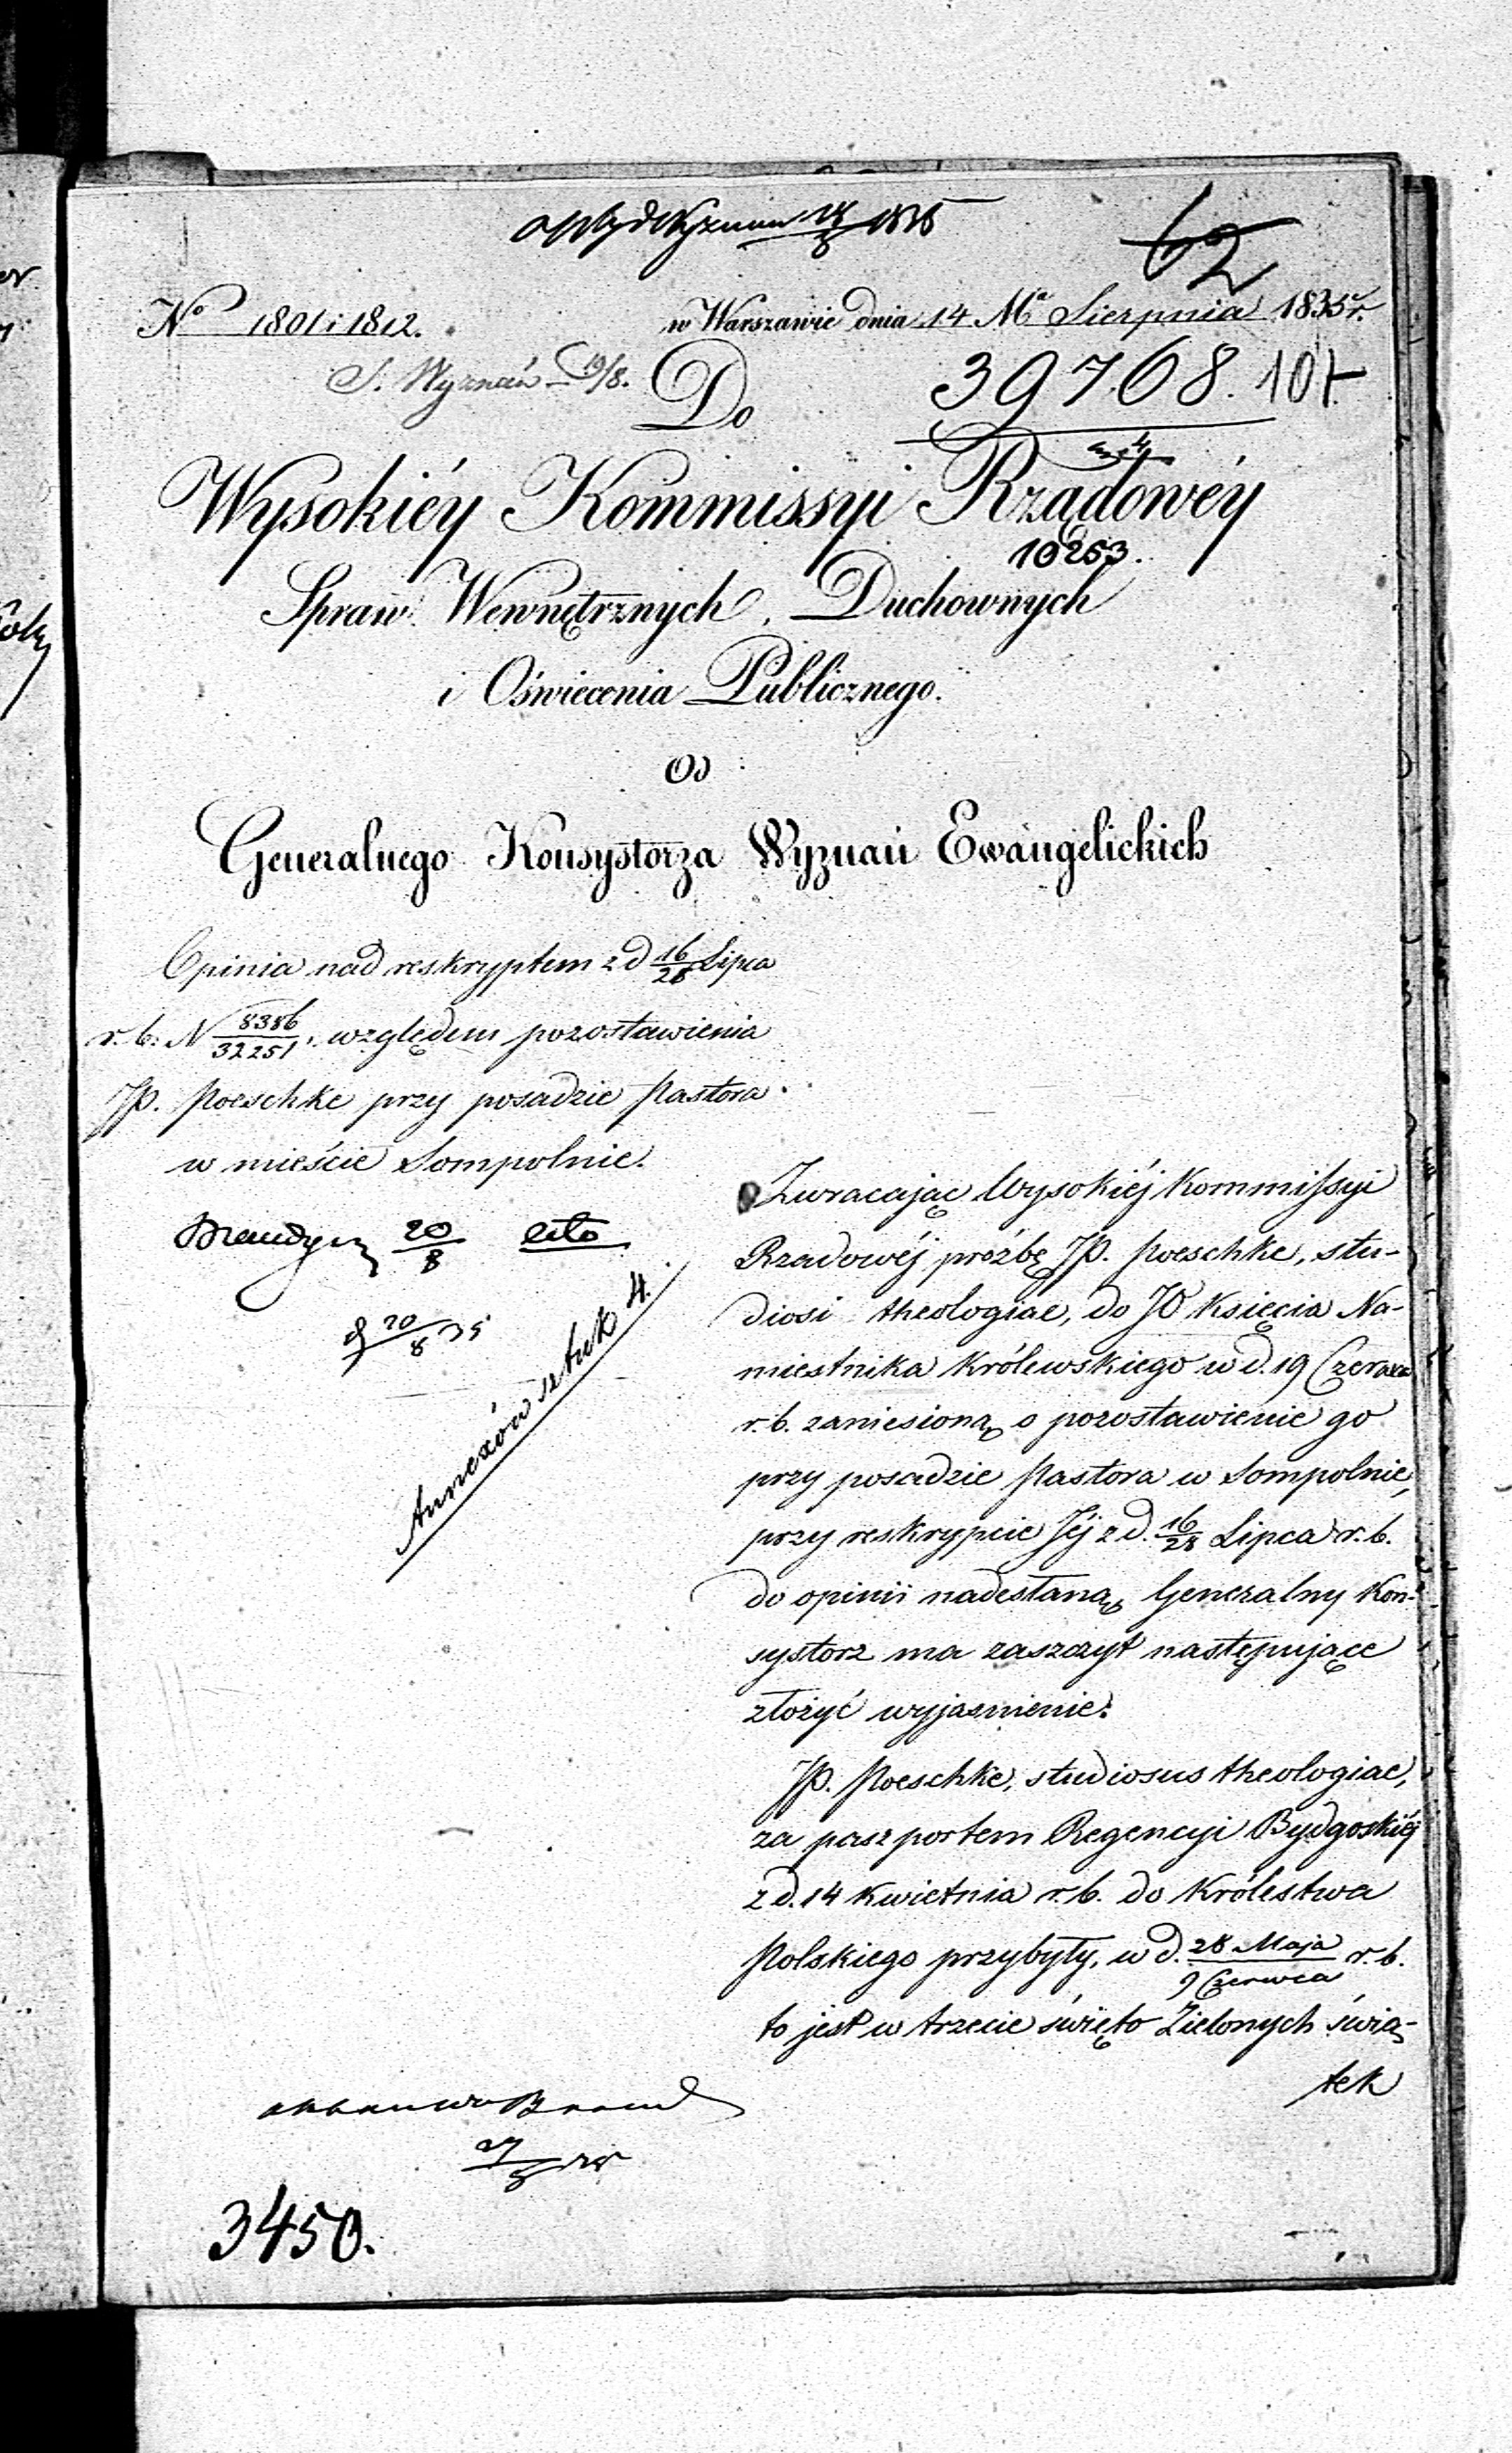 62
Nº 1801 i 1812.
w Warszawie dnia 14 Mca Sierpnia 1835 r.
S. Wyznań 19/8.
Do
39768. 107
Wysokiéy Kommissyi Rządowéy
10253.
Spraw Wewnętrznych, Duchownych
i Oświecenia Publicznego.
Od
Generalnego Konsystorza Wyznań Ewangelickich
Opinia nad reskryptem z d 16/28 Lipca
r. b: N 8386/32251, względem pozostawienia
JP. Poeschke przy posadzie Pastora
w mieście Sompolnie.
20/8 cito
20/8 35
Annexów sztuk 4.
Zwracając Wysokiéj Kommissyi
Rzadowéj próźbę JP. Poeschke, stu-
diosi theologiae, do JO Księcia Na-
miestnika Królewskiego w d. 19 Czerwca
r. b. zaniesioną o pozostawienie go
przy posadzie Pastora w Sompolnie,
przy reskrypcie Jéj z d. 16/28 Lipca r. b.
do opinii nadesłaną, Generalny Kon-
systorz ma zaszczyt następujące
złożyć wyjasnienie:
JP. Poeschke, studiosus theologiae,
za paszportem Regencyi Bydgoskiéj
z d. 14 Kwietnia r. b. do Królestwa
Polskiego przybyły, w d. 28 Maja/9 Czerwca r. b.
to jest w trzecie święto Zielonych świą-
tek
3450.